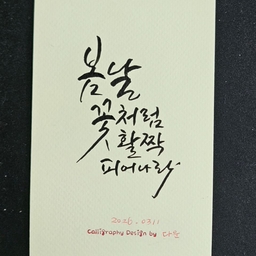 봄날
꽃처럼
활짝
피어나라
2026. 03. 11
Calligraphy Design by 다온